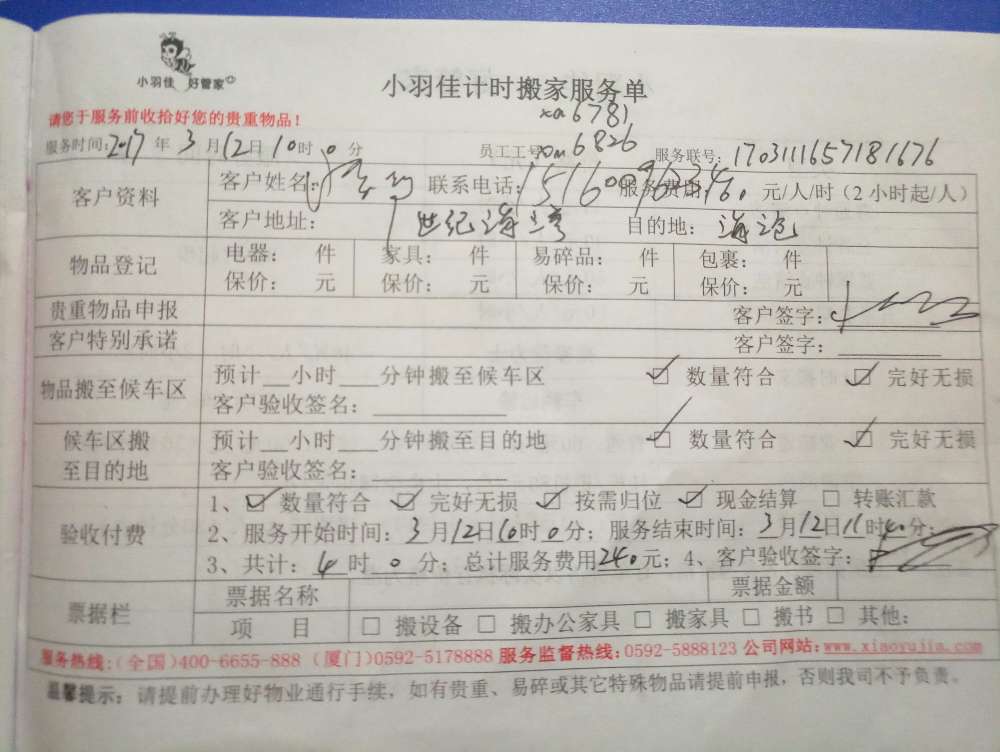 小羽佳 好管家
小羽佳计时搬家服务单
请您于服务前收拾好您的贵重物品！
xa6781
6826
服务时间：2017年3月12日10时0分 员工工号： 服务联号：1703111657181676
客户资料
客户姓名： 联系电话： 服务费用：60元/人/时（2小时起/人）
客户地址：世纪海湾 目的地：海沧
物品登记
电器： 件 家具： 件 易碎品： 件 包裹： 件
保价： 元 保价： 元 保价： 元 保价： 元
贵重物品申报 客户签字：
客户特别承诺 客户签字：
物品搬至候车区
预计__小时___分钟搬至候车区 ☑ 数量符合 ☑ 完好无损
客户验收签名：
候车区搬至目的地
预计__小时___分钟搬至目的地 ☑ 数量符合 ☑ 完好无损
客户验收签名：
验收付费
1、☑ 数量符合 ☑ 完好无损 ☑ 按需归位 ☑ 现金结算 □ 转账汇款
2、服务开始时间：3月12日10时0分；服务结束时间：3月12日11时40分；
3、共计：4时0分；总计服务费用240元；4、客户验收签字：
票据栏
票据名称 票据金额
项 目 □ 搬设备 □ 搬办公家具 □ 搬家具 □ 搬书 □ 其他：
服务热线：（全国）400-6655-888（厦门）0592-5178888 服务监督热线：0592-5888123 公司网站：www.xiaoyujia.com
温馨提示：请提前办理好物业通行手续，如有贵重、易碎或其它特殊物品请提前申报，否则我司不予负责。